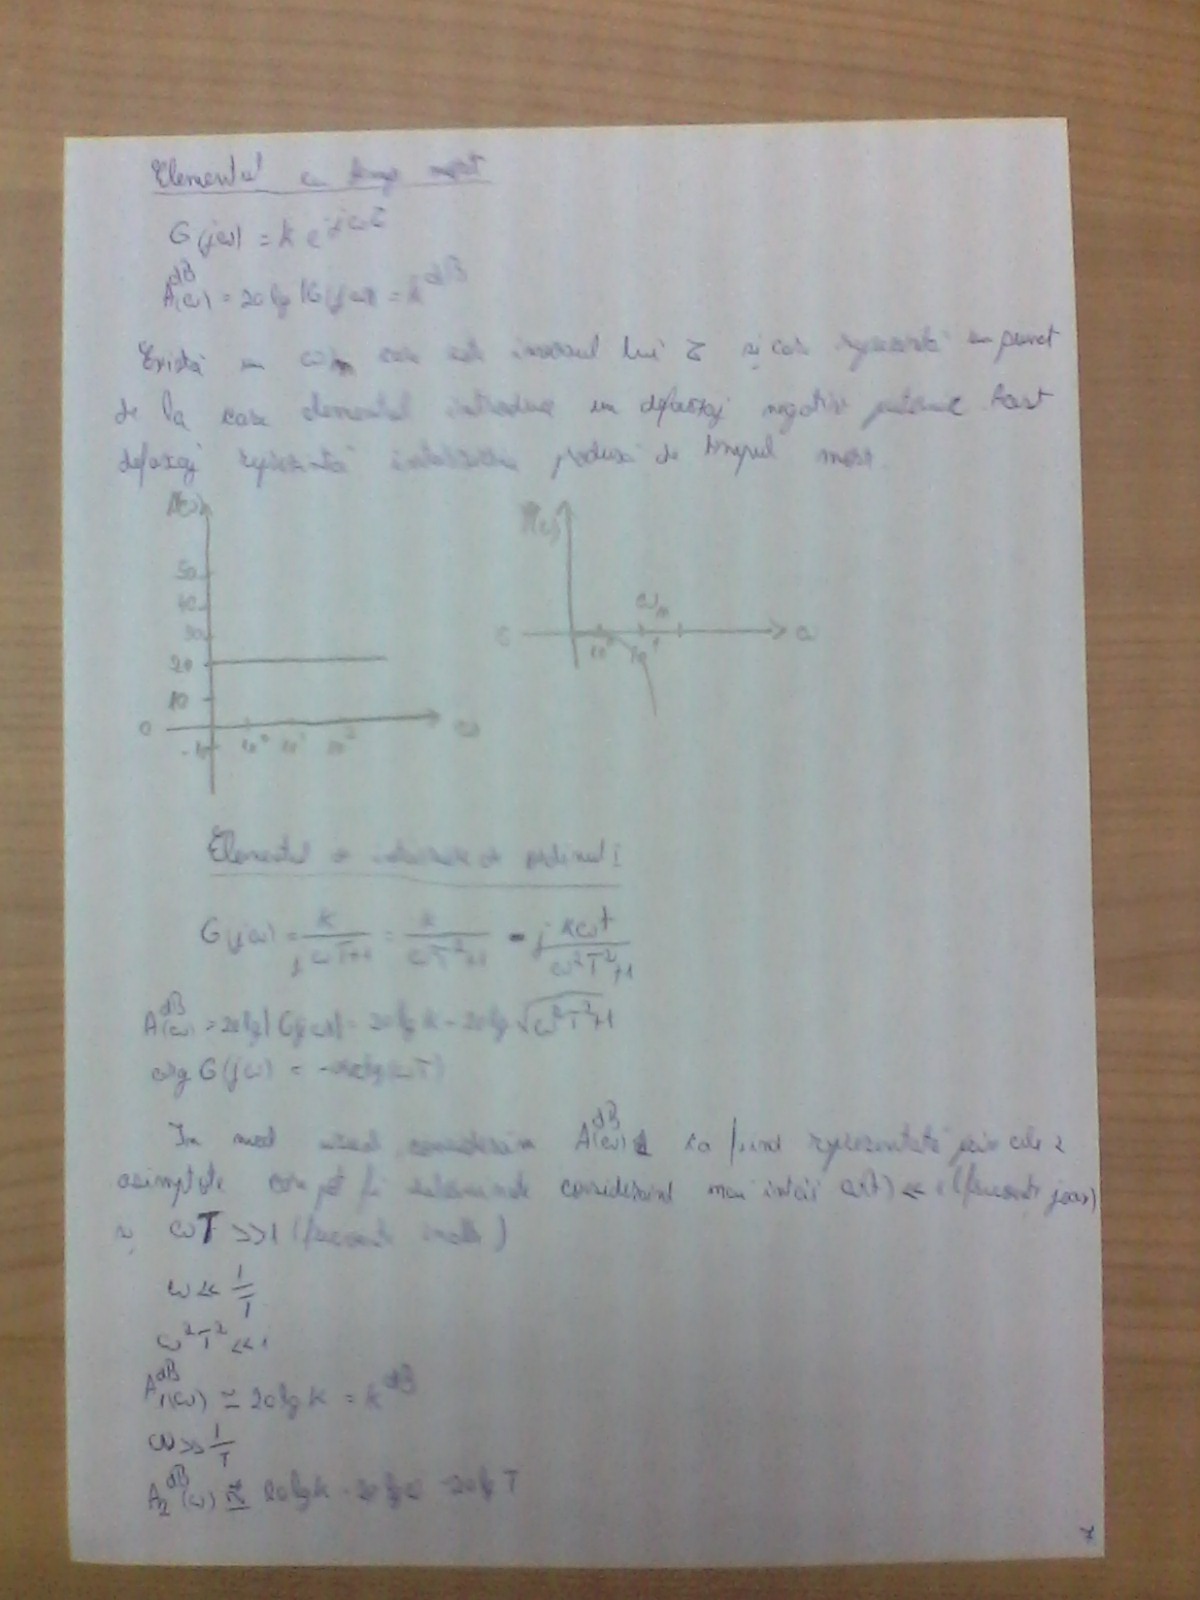 Elementul cu timp mort
G(jω) = k e^-jωτ
A(ω)^dB = 20 lg |G(jω)| = k^dB
Există un ω care este inversul lui τ și care reprezintă un punct
de la care elementul introduce un defazaj negativ puternic. Acest
defazaj reprezintă întârzierea produsă de timpul mort.
A(ω)
50
40
30
20
10
0
-10
10^0 10^1 10^2
ω
φ(ω)
0
10^0 10^1
ω
Elementul de întârziere de ordinul I
G(jω) = k/(jωT+1) = k/(ωT^2+1) - j kωt/(ω^2T^2+1)
A(ω)^dB = 20 lg |G(jω)| = 20 lg k - 20 lg √(ω^2T^2+1)
arg G(jω) = -arctg(ωT)
În mod uzual considerăm A(ω)^dB ca fiind reprezentată prin cele 2
asimptote care pot fi determinate considerând mai întâi ω(t) << 1 (frecvențe joase)
și ωT >> 1 (frecvențe înalte)
ω << 1/T
ω^2T^2 << 1
A1(ω)^dB ≃ 20 lg k = k^dB
ω >> 1/T
A2(ω)^dB ≃ 20 lg k - 20 lg ω - 20 lg T
7